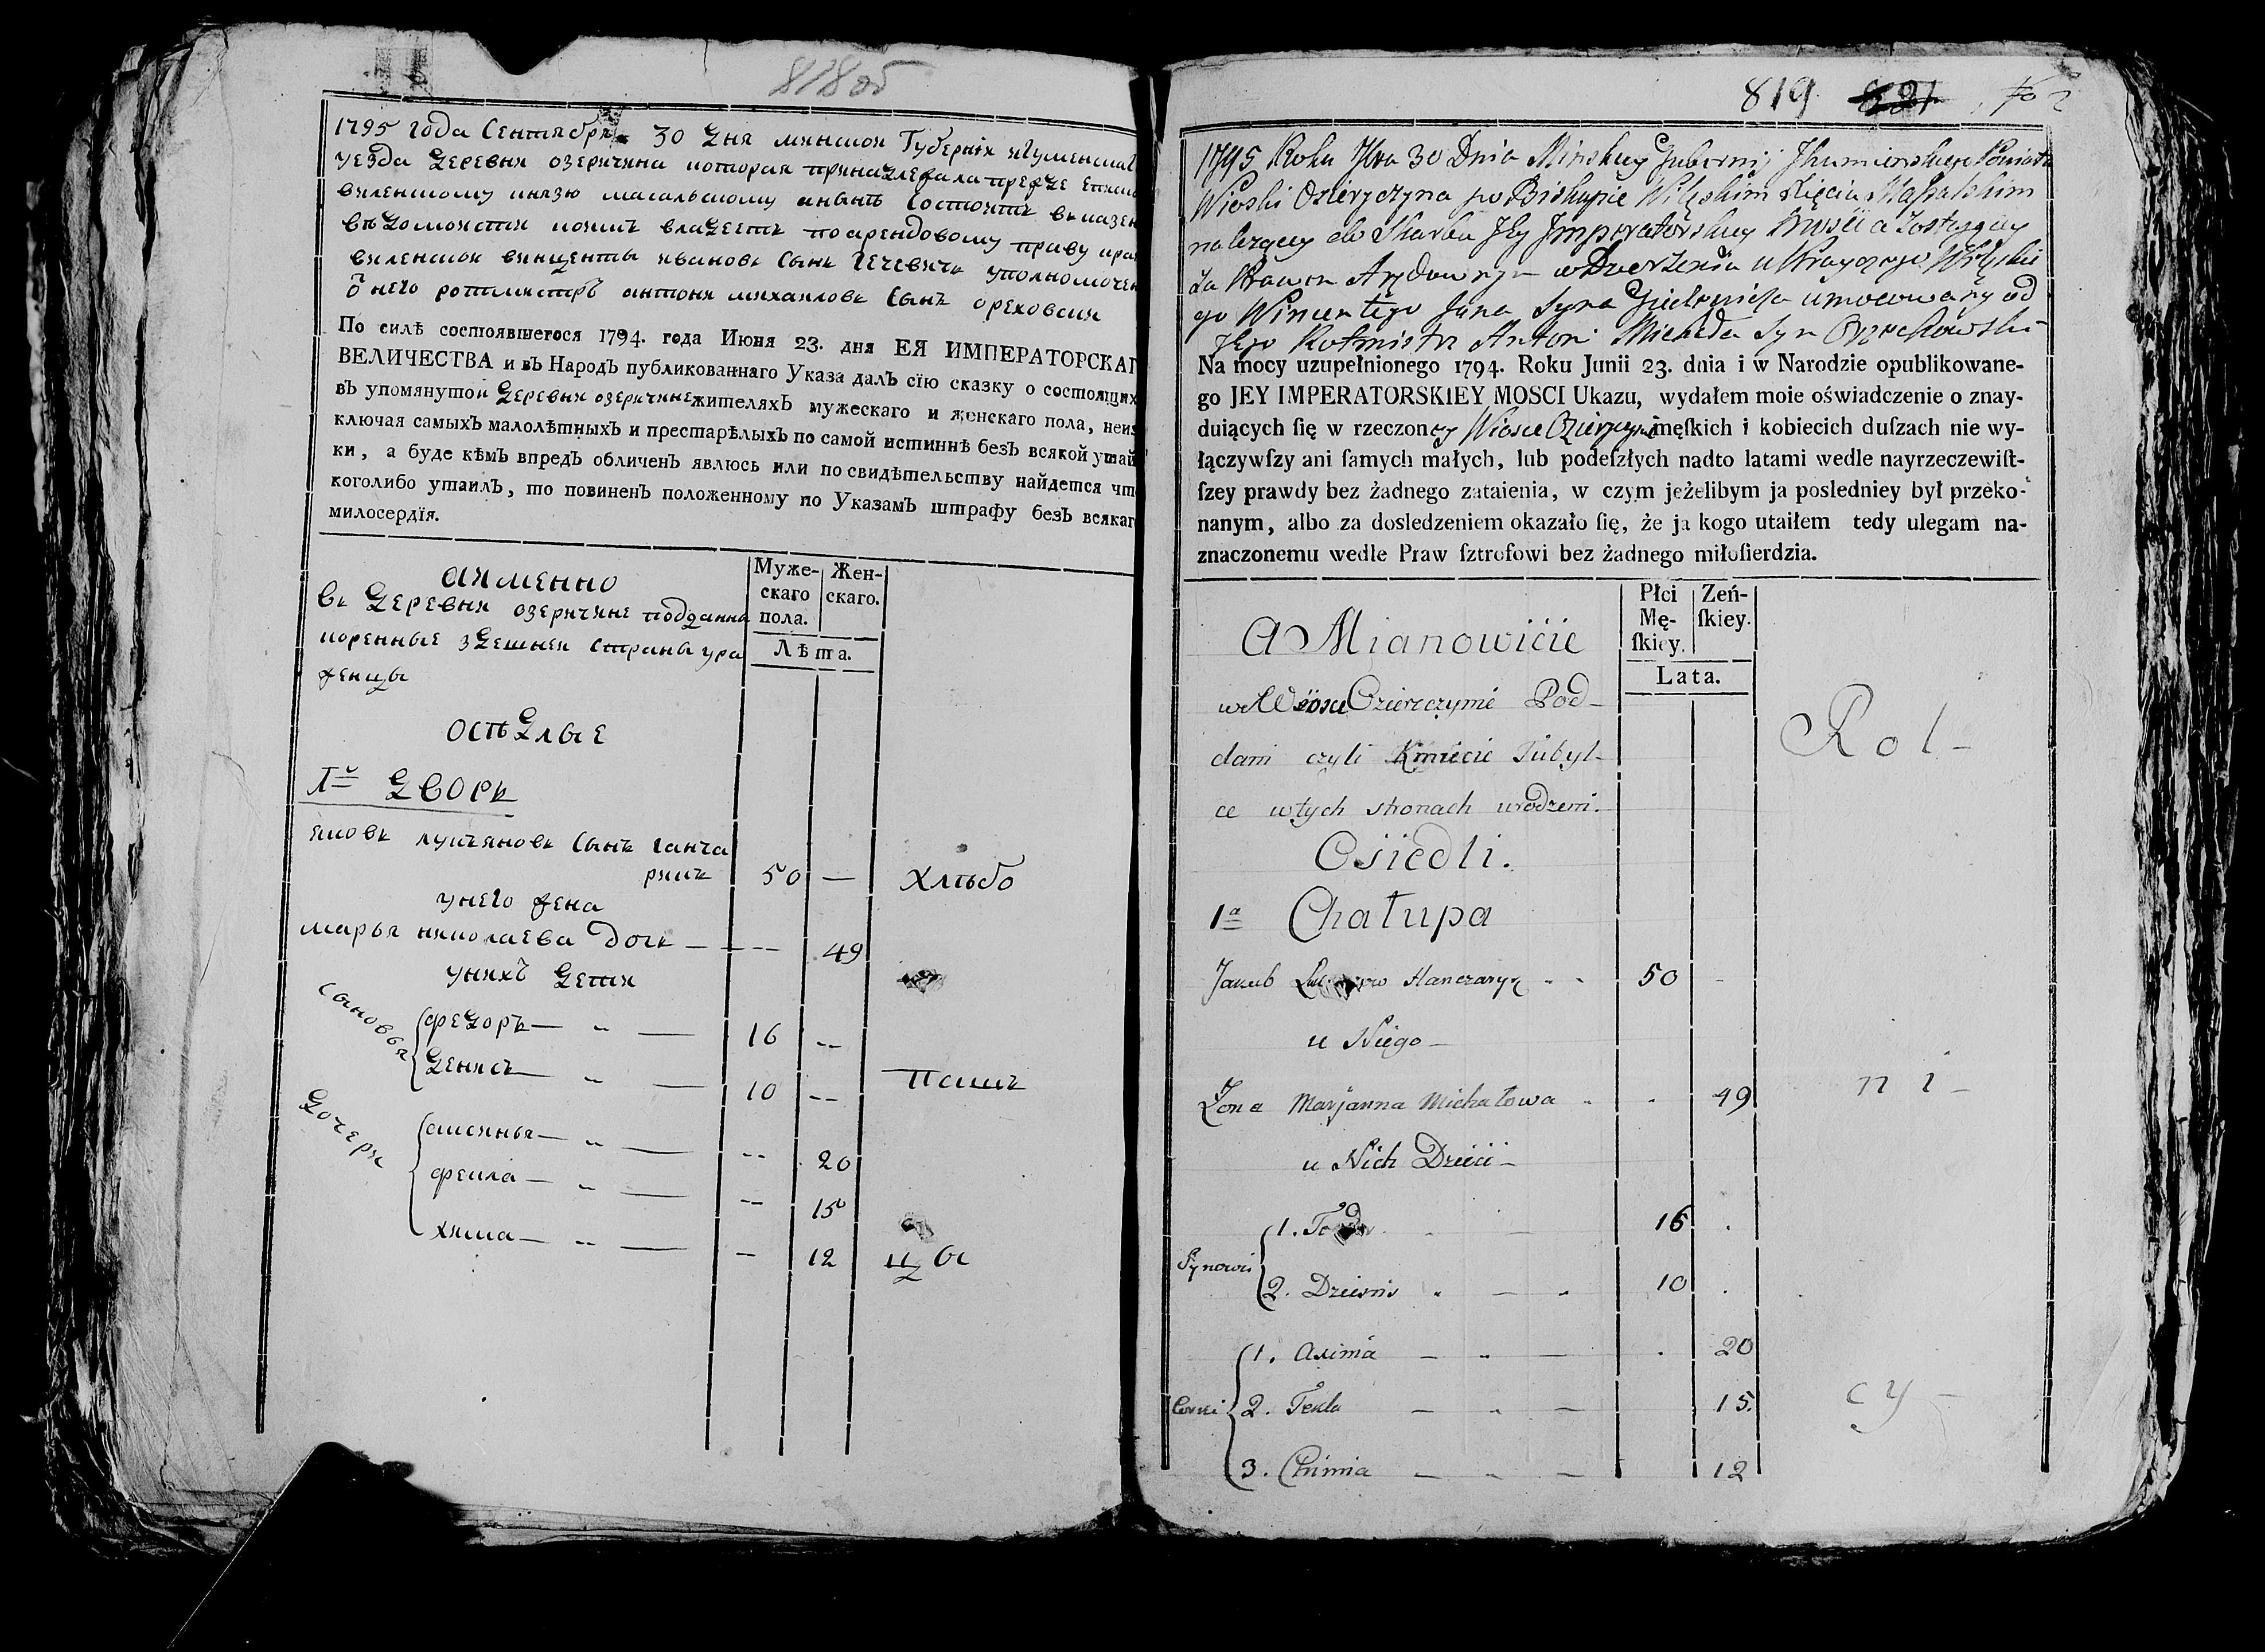 818 об
1795 года Сентября 30 дня минской Губерніи игуменскаго
уезда деревня озеричина которая принадлежала прежде епископу
виленскому князю масальскому а нынѣ состоитъ въ казен
вѣдомонстви коимъ владеетъ по арендовому праву
виленской винценты ивановъ сынъ Гечевичъ уполномочен
от него ротмистръ антони михаиловъ сынъ ореховски
По силѣ состоявшегося 1794. года Июня 23. дня ЕЯ ИМПЕРАТОРСКАГ
ВЕЛИЧЕСТВА и въ Народъ публикованнаго Указа далъ сїю сказку о состоящих
въ упомянутой деревни озеричине жителяхъ мужескаго и женскаго пола, неиз
ключая самыхъ малолѣтныхъ и престарѣлыхъ по самой истиннѣ безъ всякой утай
ки, а буде кѣмъ впредъ обличенъ явлюсь или по свидѣтельству найдется чт
коголибо утаилъ, то повиненъ положенному по Указамъ штрафу безъ всякаг
милосердїя.
Муже-
скаго
пола.
Жен-
скаго.
Лѣта.
аименно
въ деревни озеричине подданна
коренные здешней страны уро
женцы
осѣдлые
1й дворъ
яковъ лукъяновъ сынъ ганча
рикъ 50 — хлѣбо
у него жена
марья николаева дочь — 49
у нихъ дети
сыновья
федоръ — 16 --
денисъ — 10 -- пашъ
дочери
аксинья — -- 20
фекла — -- 15
хима — — 12 цы
819 821
1795 Roku 7bra 30 Dnia Minskiey Gubernij Ihumienskiego Powiatu
Wioski Ozieryczyna po Biskupie Wileńskim Xięciu Massalskim
należący do Skarbu Jey Imperatorskiey Mości a zostaiący
za Prawem Arędownym w Dzierżeniu
go Wincentego Jana Syna Gieczewicza umocowany od
Jego Rotmistrz Antoni Michała Syn Orzechowski
Na mocy uzupełnionego 1794. Roku Junii 23. dnia i w Narodzie opublikowane-
go JEY IMPERATORSKIEY MOSCI Ukazu, wydałem moie oświadczenie o znay-
duiących ſię w rzeczoney Wiosce Ozieryczynie męſkich i kobiecich duſzach nie wy-
łączywſzy ani ſamych małych, lub podeſzłych nadto latami wedle nayrzeczewiſt-
ſzey prawdy bez żadnego zataienia, w czym jeżelibym ja posledniey był przeko-
nanym, albo za dosledzeniem okazało ſię, że ja kogo utaiłem tedy ulegam na-
znaczonemu wedle Praw ſztrofowi bez żadnego miłoſierdzia.
Płci
Mę-
ſkiey.
Zeń-
ſkiey.
Lata.
A Mianowićie
w Wiosce Ozierczynie Pod-
dani czyli Kmiecie Tubyl-
ce w tych stronach urodzeni.
Rol-
Osiedli.
1a Chałupa
Jakub Hanczaryk 50 -
u Niego -
Żona Marjanna Michałowa 49 ni-
u Nich Dzieci -
Synowi
1. 16
2. Dzienis 10
Corki
1. Axima — 20
2. Tekla — 15. cy -
3. Chimia — 12